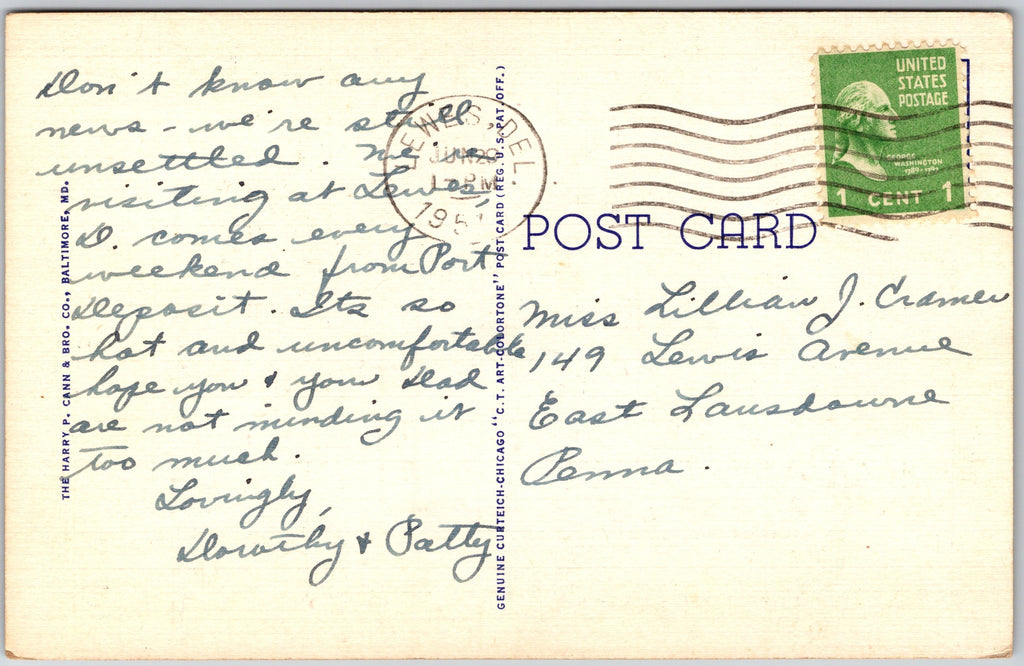 Don't know any
news - we're still
unsettled. We're
visiting at Lewes,
D. comes every
weekend from Port
Deposit. Its so
hot and uncomfortable
hope you & your Dad
are not minding it
too much.
Lovingly,
Dorothy & Patty
THE HARRY P. CANN & BRO. CO., BALTIMORE, MD.
GENUINE CURTEICH-CHICAGO "C.T. ART-COLORTONE" POST CARD (REG. U.S. PAT. OFF.)
LEWES, DEL.
JUN 29
PM
UNITED
STATES
POSTAGE
GEORGE
WASHINGTON
1789-1797
1 CENT 1
POST CARD
Miss Lillian J. Cramer
149 Lewis Avenue
East Lansdowne
Penna.